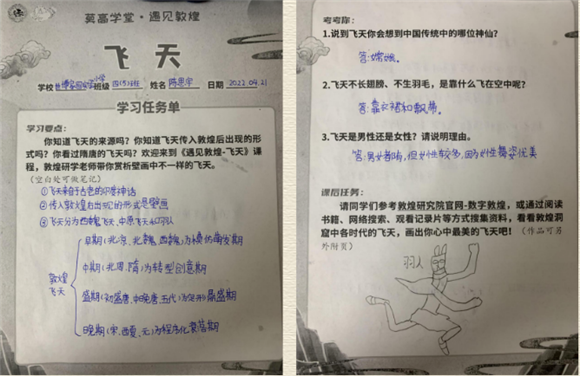 莫高学堂·遇见敦煌
飞天
学校 班级 四(5)班 姓名 陈思宇 日期 2022.04.21
学习任务单
学习要点:
你知道飞天的来源吗?你知道飞天传入敦煌后出现的形
式吗?你看过隋唐的飞天吗?欢迎来到《遇见敦煌-飞天》课
程,敦煌研学老师带你赏析壁画中不一样的飞天。
(空白处可做笔记)
①飞天来自于古老的印度神话
②传入敦煌后出现的形式是壁画
③飞天分为西魏飞天、中原飞天和羽人
敦煌
飞天
早期(北凉、北魏、西魏)为模仿萌发期
中期(北周、隋)为转型创意期
盛期(初盛唐、中晚唐、五代)为定形鼎盛期
晚期(宋、西夏、元)为程序化衰落期
考考你:
1.说到飞天你会想到中国传统中的哪位神仙?
答:嫦娥。
2.飞天不长翅膀、不生羽毛,是靠什么飞在空中呢?
答:靠衣裙和飘带。
3.飞天是男性还是女性?请说明理由。
答:男女都有,但女性较多,因为女性舞姿优美
课后任务:
请同学们参考敦煌研究院官网-数字敦煌,或通过阅读
书籍、网络搜索、观看记录片等方式搜集资料,看看敦煌洞
窟中各时代的飞天,画出你心中最美的飞天吧!(作品可另
外附页)
羽人